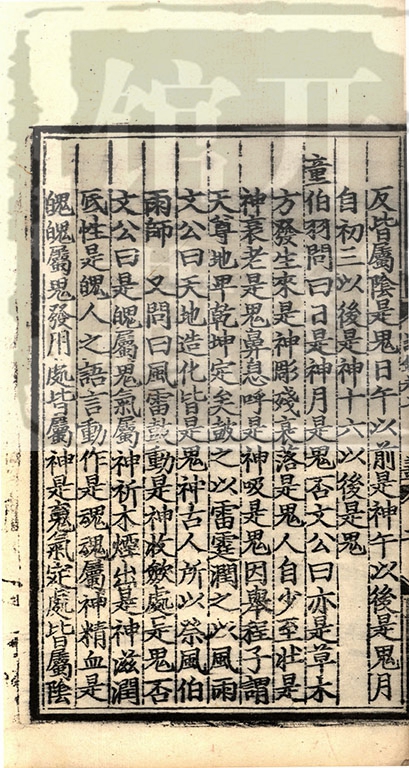 反皆屬陰是鬼日午以前是神午以後是鬼月
自初三以後是神十六以後是鬼
童伯羽問曰日是神月是鬼否文公曰亦是草木
方發生來是神彫殘衰落是鬼人自少至壯是
神衰老是鬼鼻息呼是神吸是鬼因舉程子謂
天尊地卑乾坤定矣鼓之以雷霆潤之以風雨
文公曰天地造化皆是鬼神古人所以祭風伯
雨師 又問曰風雷鼓動是神收斂處是鬼否
文公曰是魄屬鬼氣屬神析木煙出是神滋潤
底性是魄人之語言動作是魂魂屬神精血是
魄魄屬鬼發用處皆屬神是䰟氣定處皆屬陰
馆开